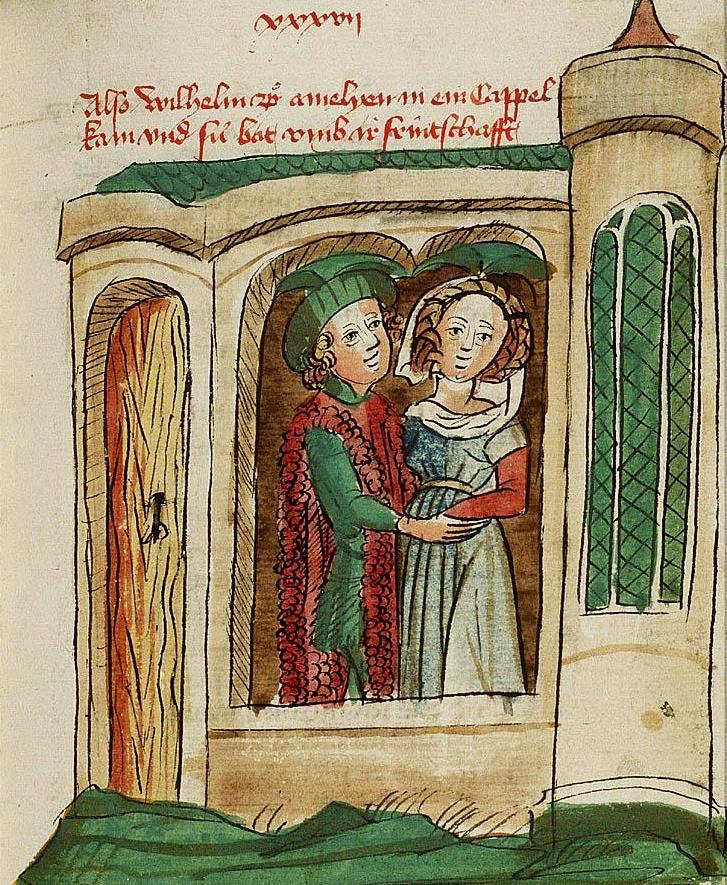 xxxvii
Also wilhelm zů amelyen in ein Cappel
kam vnd sú bat vmb ir frúntschafft